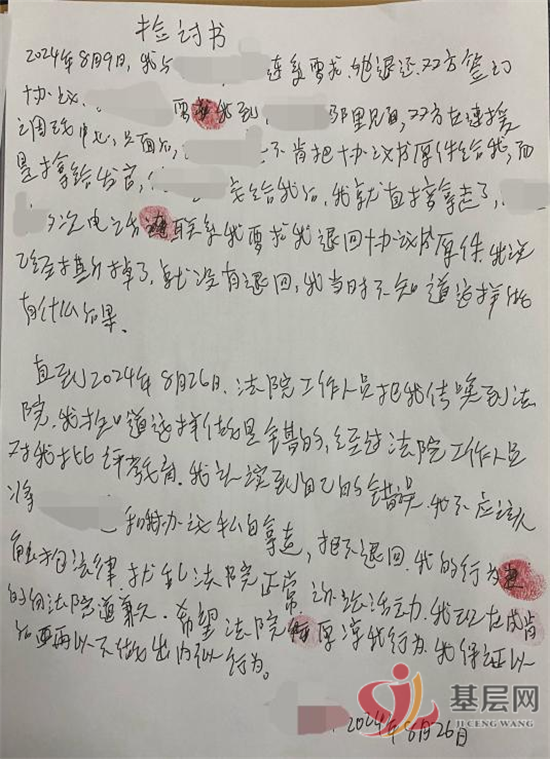 检讨书
2024年8月9日,我与 连系要求,他退还,双方签订
协议. 要求我到 那里见面,双方在速裁
调the中心,见面后, 不肯把协议书原件给我,而
是拿给法官, 交给我后,我就直接拿走了,
多次电话 联系我要求我退回协议书原件.我说
已经撕掉了,就没有退回,我当时不知道这样做
有什么后果.
直到2024年8月26日,法院工作人员把我传唤到法
院.我才知道这样做是错的,经过法院工作人员
对我批评教育.我认识到自己的错误.我不应该
将 和 协议私自拿走,拒不退回.我的行为
触犯法律.扰乱法院正常诉讼活动.我现在
的向法院道歉.希望法院 原谅我行为.我保证以
后 不做出类似行为。
2024年8月26日
基层网
JI CENG WANG